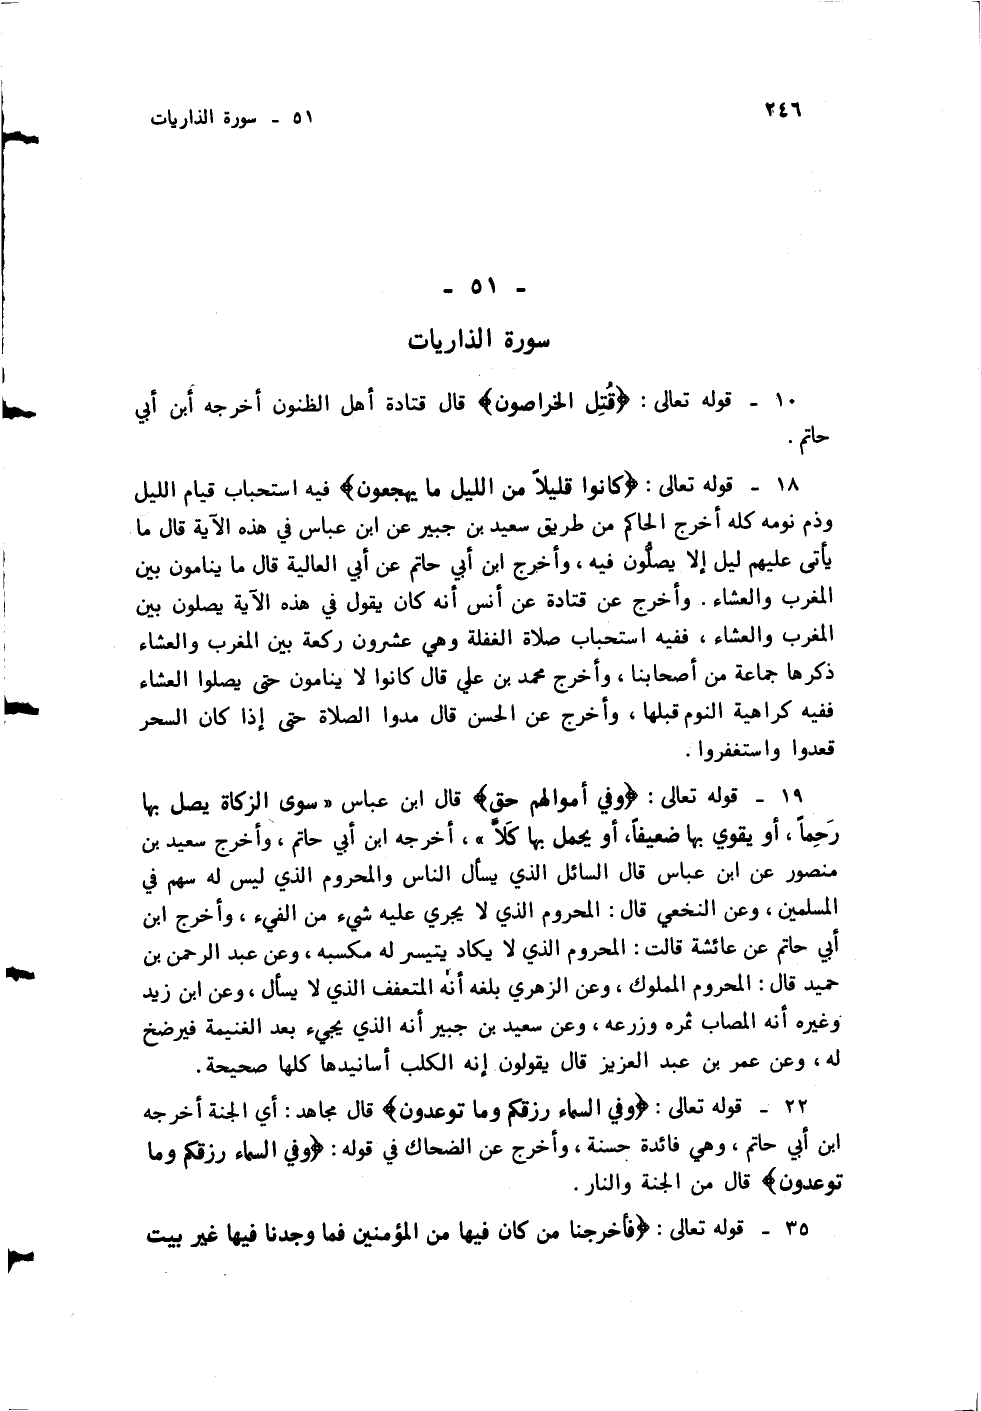 ٢٤٦
٥١ - سورة الذاريات
- ٥١ -
سورة الذاريات
١٠ - قوله تعالى : ﴿قُتِل الخراصون﴾ قال قتادة أهل الظنون أخرجه أبن أبي
حاتم .
١٨ - قوله تعالى : ﴿كانوا قليلاً من الليل ما يهجعون﴾ فيه استحباب قيام الليل
وذم نومه كله أخرج الحاكم من طريق سعيد بن جبير عن ابن عباس في هذه الآية قال ما
يأتى عليهم ليل إلا يصلُّون فيه ، وأخرج ابن أبي حاتم عن أبي العالية قال ما ينامون بين
المغرب والعشاء . وأخرج عن قتادة عن أنس أنه كان يقول في هذه الآية يصلون بين
المغرب والعشاء ، ففيه استحباب صلاة الغفلة وهي عشرون ركعة بين المغرب والعشاء
ذكرها جماعة من أصحابنا ، وأخرج محمد بن علي قال كانوا لا ينامون حتى يصلوا العشاء
ففيه كراهية النوم قبلها ، وأخرج عن الحسن قال مدوا الصلاة حتى إذا كان السحر
قعدوا واستغفروا .
١٩ - قوله تعالى : ﴿وفي أموالهم حق﴾ قال ابن عباس « سوى الزكاة يصل بها
رَحِماً ، أو يقوي بها ضعيفاً، أو يحمل بها كَلاًّ » ، أخرجه ابن أبي حاتم ، وأخرج سعيد بن
منصور عن ابن عباس قال السائل الذي يسأل الناس والمحروم الذي ليس له سهم في
المسلمين ، وعن النخعي قال : المحروم الذي لا يجري عليه شيء من الفيء ، وأخرج ابن
أبي حاتم عن عائشة قالت : المحروم الذي لا يكاد يتيسر له مكسبه ، وعن عبد الرحمن بن
حميد قال : المحروم المملوك ، وعن الزهري بلغه أنه المتعفف الذي لا يسأل ، وعن ابن زيد
وغيره أنه المصاب ثمره وزرعه ، وعن سعيد بن جبير أنه الذي يجيء بعد الغنيمة فيرضخ
له ، وعن عمر بن عبد العزيز قال يقولون إنه الكلب أسانيدها كلها صحيحة .
٢٢ - قوله تعالى : ﴿وفي السماء رزقكم وما توعدون﴾ قال مجاهد : أي الجنة أخرجه
ابن أبي حاتم ، وهي فائدة حسنة ، وأخرج عن الضحاك في قوله : ﴿وفي السماء رزقكم وما
توعدون﴾ قال من الجنة والنار .
٣٥ - قوله تعالى : ﴿فأخرجنا من كان فيها من المؤمنين فما وجدنا فيها غير بيت